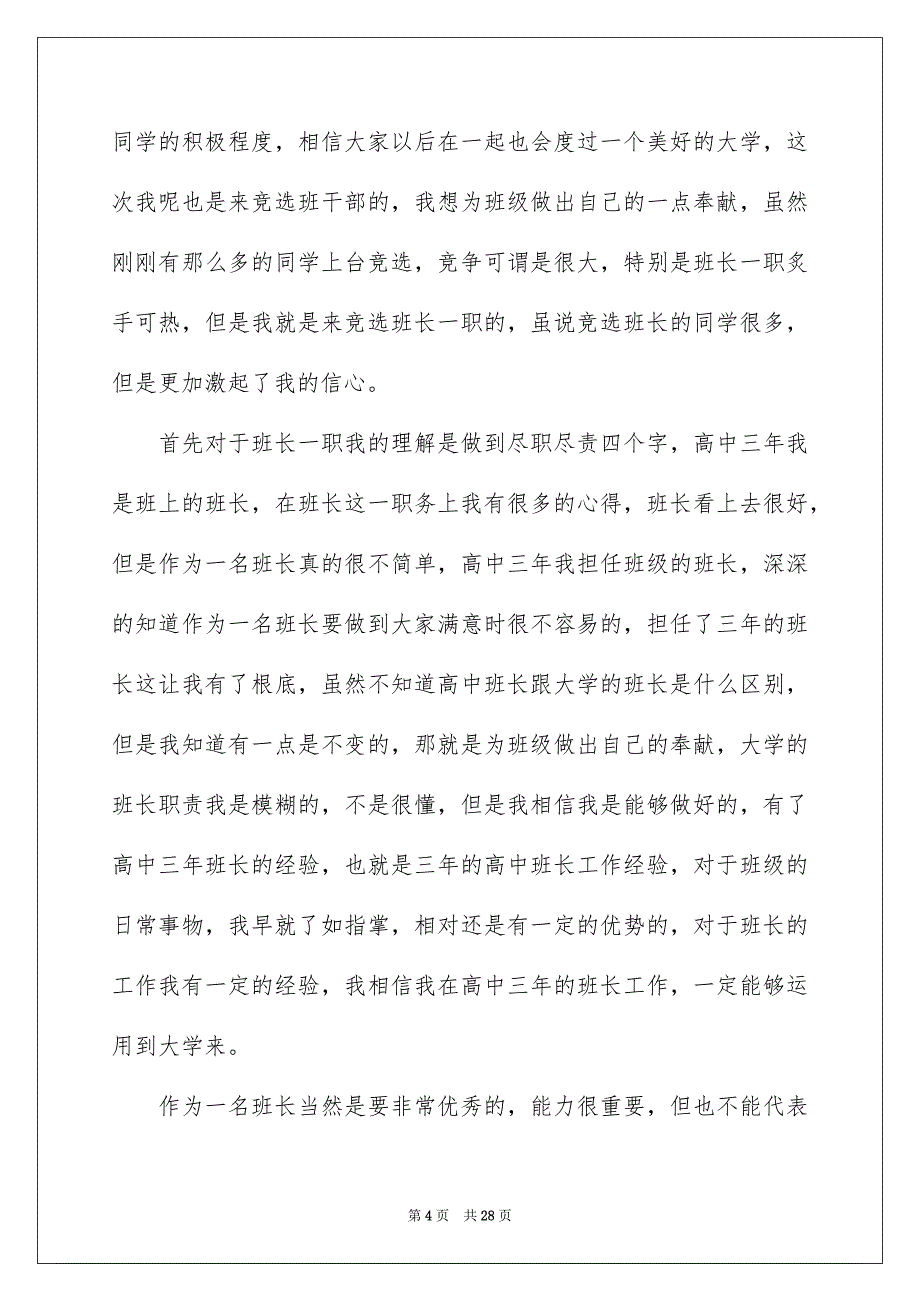 同学的积极程度，相信大家以后在一起也会度过一个美好的大学，这
次我呢也是来竞选班干部的，我想为班级做出自己的一点奉献，虽然
刚刚有那么多的同学上台竞选，竞争可谓是很大，特别是班长一职炙
手可热，但是我就是来竞选班长一职的，虽说竞选班长的同学很多，
但是更加激起了我的信心。
首先对于班长一职我的理解是做到尽职尽责四个字，高中三年我
是班上的班长，在班长这一职务上我有很多的心得，班长看上去很好，
但是作为一名班长真的很不简单，高中三年我担任班级的班长，深深
的知道作为一名班长要做到大家满意时很不容易的，担任了三年的班
长这让我有了根底，虽然不知道高中班长跟大学的班长是什么区别，
但是我知道有一点是不变的，那就是为班级做出自己的奉献，大学的
班长职责我是模糊的，不是很懂，但是我相信我是能够做好的，有了
高中三年班长的经验，也就是三年的高中班长工作经验，对于班级的
日常事物，我早就了如指掌，相对还是有一定的优势的，对于班长的
工作我有一定的经验，我相信我在高中三年的班长工作，一定能够运
用到大学来。
作为一名班长当然是要非常优秀的，能力很重要，但也不能代表
第 4 页 共 28 页